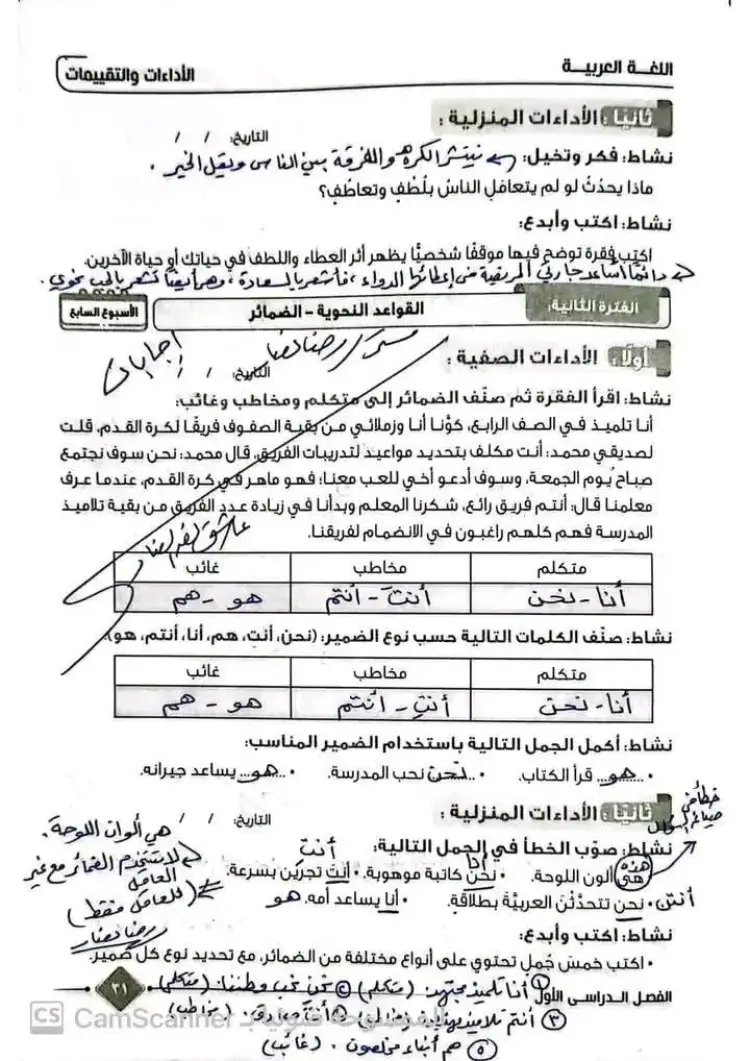 اللغـة العربيـــة
الأداءات والتقييمات
ثانيًا: الأداءات المنزلية :
التاريخ: / /
نشاط: فكر وتخيل: ينتشر الكره والفرقة بين الناس ويقل الخير .
ماذا يحدُث لو لم يتعامَلِ الناسُ بلُطْفٍ وتعاطُفٍ؟
نشاط: اكتب وأبدع:
اكتب فقرة توضح فيها موقفًا شخصيًّا يظهر أثر العطاء واللطف في حياتك أو حياة الآخرين.
دائمًا أساعد جارتي المريضة في إعطائها الدواء ، فأشعر بالسعادة ، وهى أيضًا تشعر بالحب نحوي .
الفترة الثانية:
القواعد النحوية - الضمائر
الأسبوع السابع
أولًا: الأداءات الصفية :
إجابات
التاريخ: / /
نشاط: اقرأ الفقرة ثم صنّف الضمائر إلى متكلم ومخاطب وغائب:
أنا تلميذ في الصف الرابع، كوَّنا أنا وزملائي من بقية الصفوف فريقًا لكرة القدم، قلت
لصديقي محمد: أنت مكلف بتحديد مواعيد لتدريبات الفريق، قال محمد: نحن سوف نجتمع
صباح يوم الجمعة، وسوف أدعو أخي للعب معنا؛ فهو ماهر في كرة القدم، عندما عرف
معلمنا قال: أنتم فريق رائع، شكرنا المعلم وبدأنا في زيادة عدد الفريق من بقية تلاميذ
المدرسة فهم كلهم راغبون في الانضمام لفريقنا.
متكلم مخاطب غائب
أنا - نحن أنتَ - أنتم هو - هم
نشاط: صنّف الكلمات التالية حسب نوع الضمير: (نحن، أنتِ، هم، أنا، أنتم، هو).
متكلم مخاطب غائب
أنا - نحن أنتِ - أنتم هو - هم
نشاط: أكمل الجمل التالية باستخدام الضمير المناسب:
• ..هو.. قرأ الكتاب. • ..نحن نحب المدرسة. • ..هو.. يساعد جيرانه.
خطأ في
صياغة السؤال
ثانيًا: الأداءات المنزلية :
التاريخ: / /
هي ألوان اللوحة .
نشاط: صوّب الخطأ في الجمل التالية:
لا تستخدم الضمائر مع غير
العاقل
هذه أنا أنتِ
• هي ألون اللوحة. • نحن كاتبة موهوبة. • أنتَ تجرين بسرعة.
(للعاقل فقط)
أنتن • نحن تتحدثْنَ العربيَّة بطلاقةٍ. • أنا يساعد أمه. هو
نشاط: اكتب وأبدع:
• اكتب خمسَ جُملٍ تحتوي على أنواع مختلفة من الضمائر، مع تحديد نوع كل ضمير.
① أنا تلميذ مجتهد. (متكلم) ② نحن نحب وطننا. (متكلم)
الفصل الدراسى الأول
٣١
③ أنتم تلاميذ (مخاطب) ④ أنت (مخاطب)
⑤ هم أبناء مخلصون . (غائب)
CS CamScanner الممسوحة ضوئيا بـ